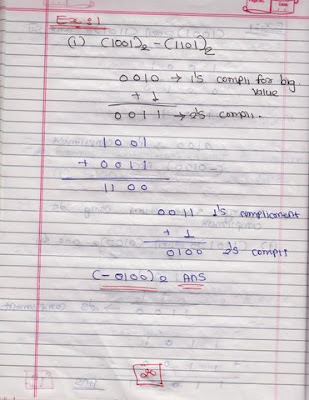 Ex:1
(i) (1001)2 - (1101)2
0010 → 1's compli for big value
+ 1
0011 → 2's compli.
1001
+ 0011
1100
0011 1's compliment
+ 1
0100 2's compli
(-0100)2 Ans
20